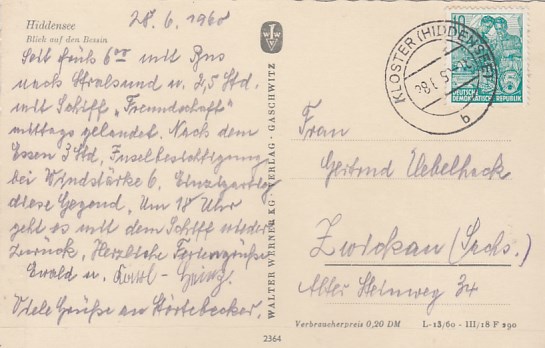 Hiddensee
Blick auf den Bessin
28.6.1960
Seit früh 6⁰⁰ mit Bus
nach Stralsund u. 2,5 Std.
mit Schiff "Freundschaft"
mittags gelandet. Nach dem
Essen 3 Std. Inselbesichtigung
bei Windstärke 6. Einzigartig
diese Gegend. Um 18 Uhr
geht es mit dem Schiff wieder
zurück. Herzliche Feriengrüße
Ewald u.
Viele Grüße an Störtebecker.
WALTER WERNER KG · VERLAG · GASCHWITZ
2364
KLOSTER (HIDDENSEE)
b
10
DEUTSCHE
DEMOKRATISCHE REPUBLIK
Frau
Gertrud Uebelhack
Zwickau (Sachs.)
Alter Steinweg 34
Verbraucherpreis 0,20 DM L-13/60 - III/18 F 190